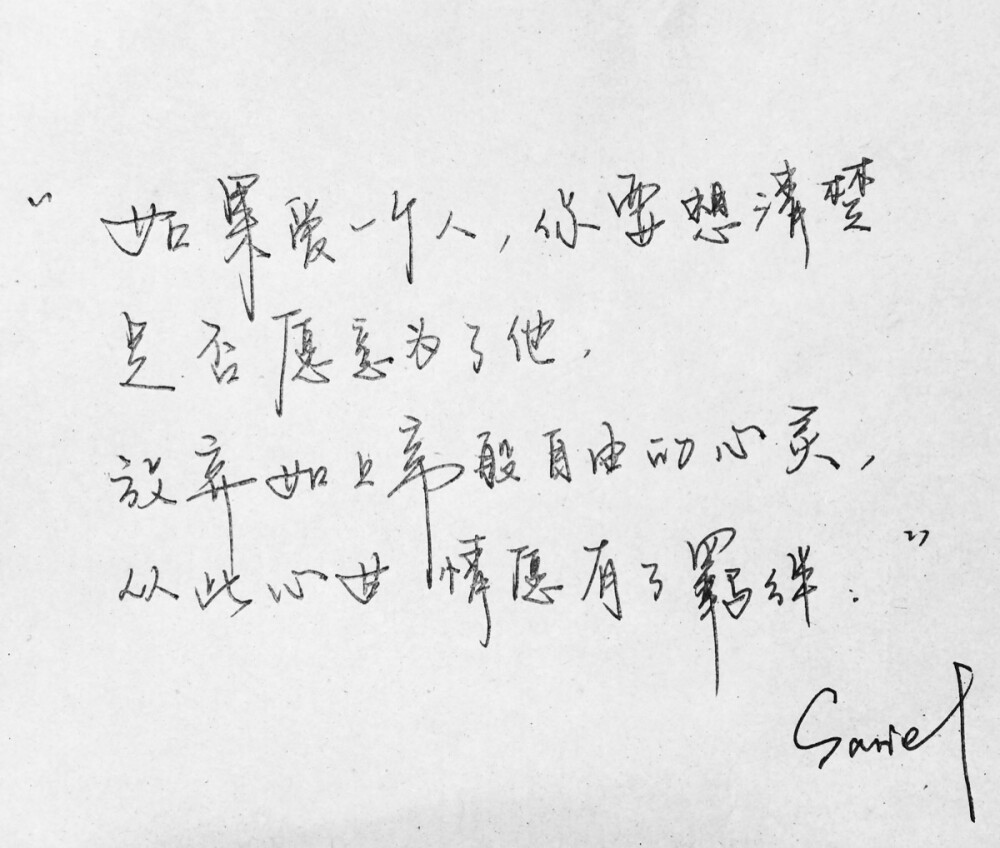 “如果爱一个人，你要想清楚
是否愿意为了他，
放弃如上帝般自由的心灵，
从此心甘情愿有了羁绊.”
Sariel